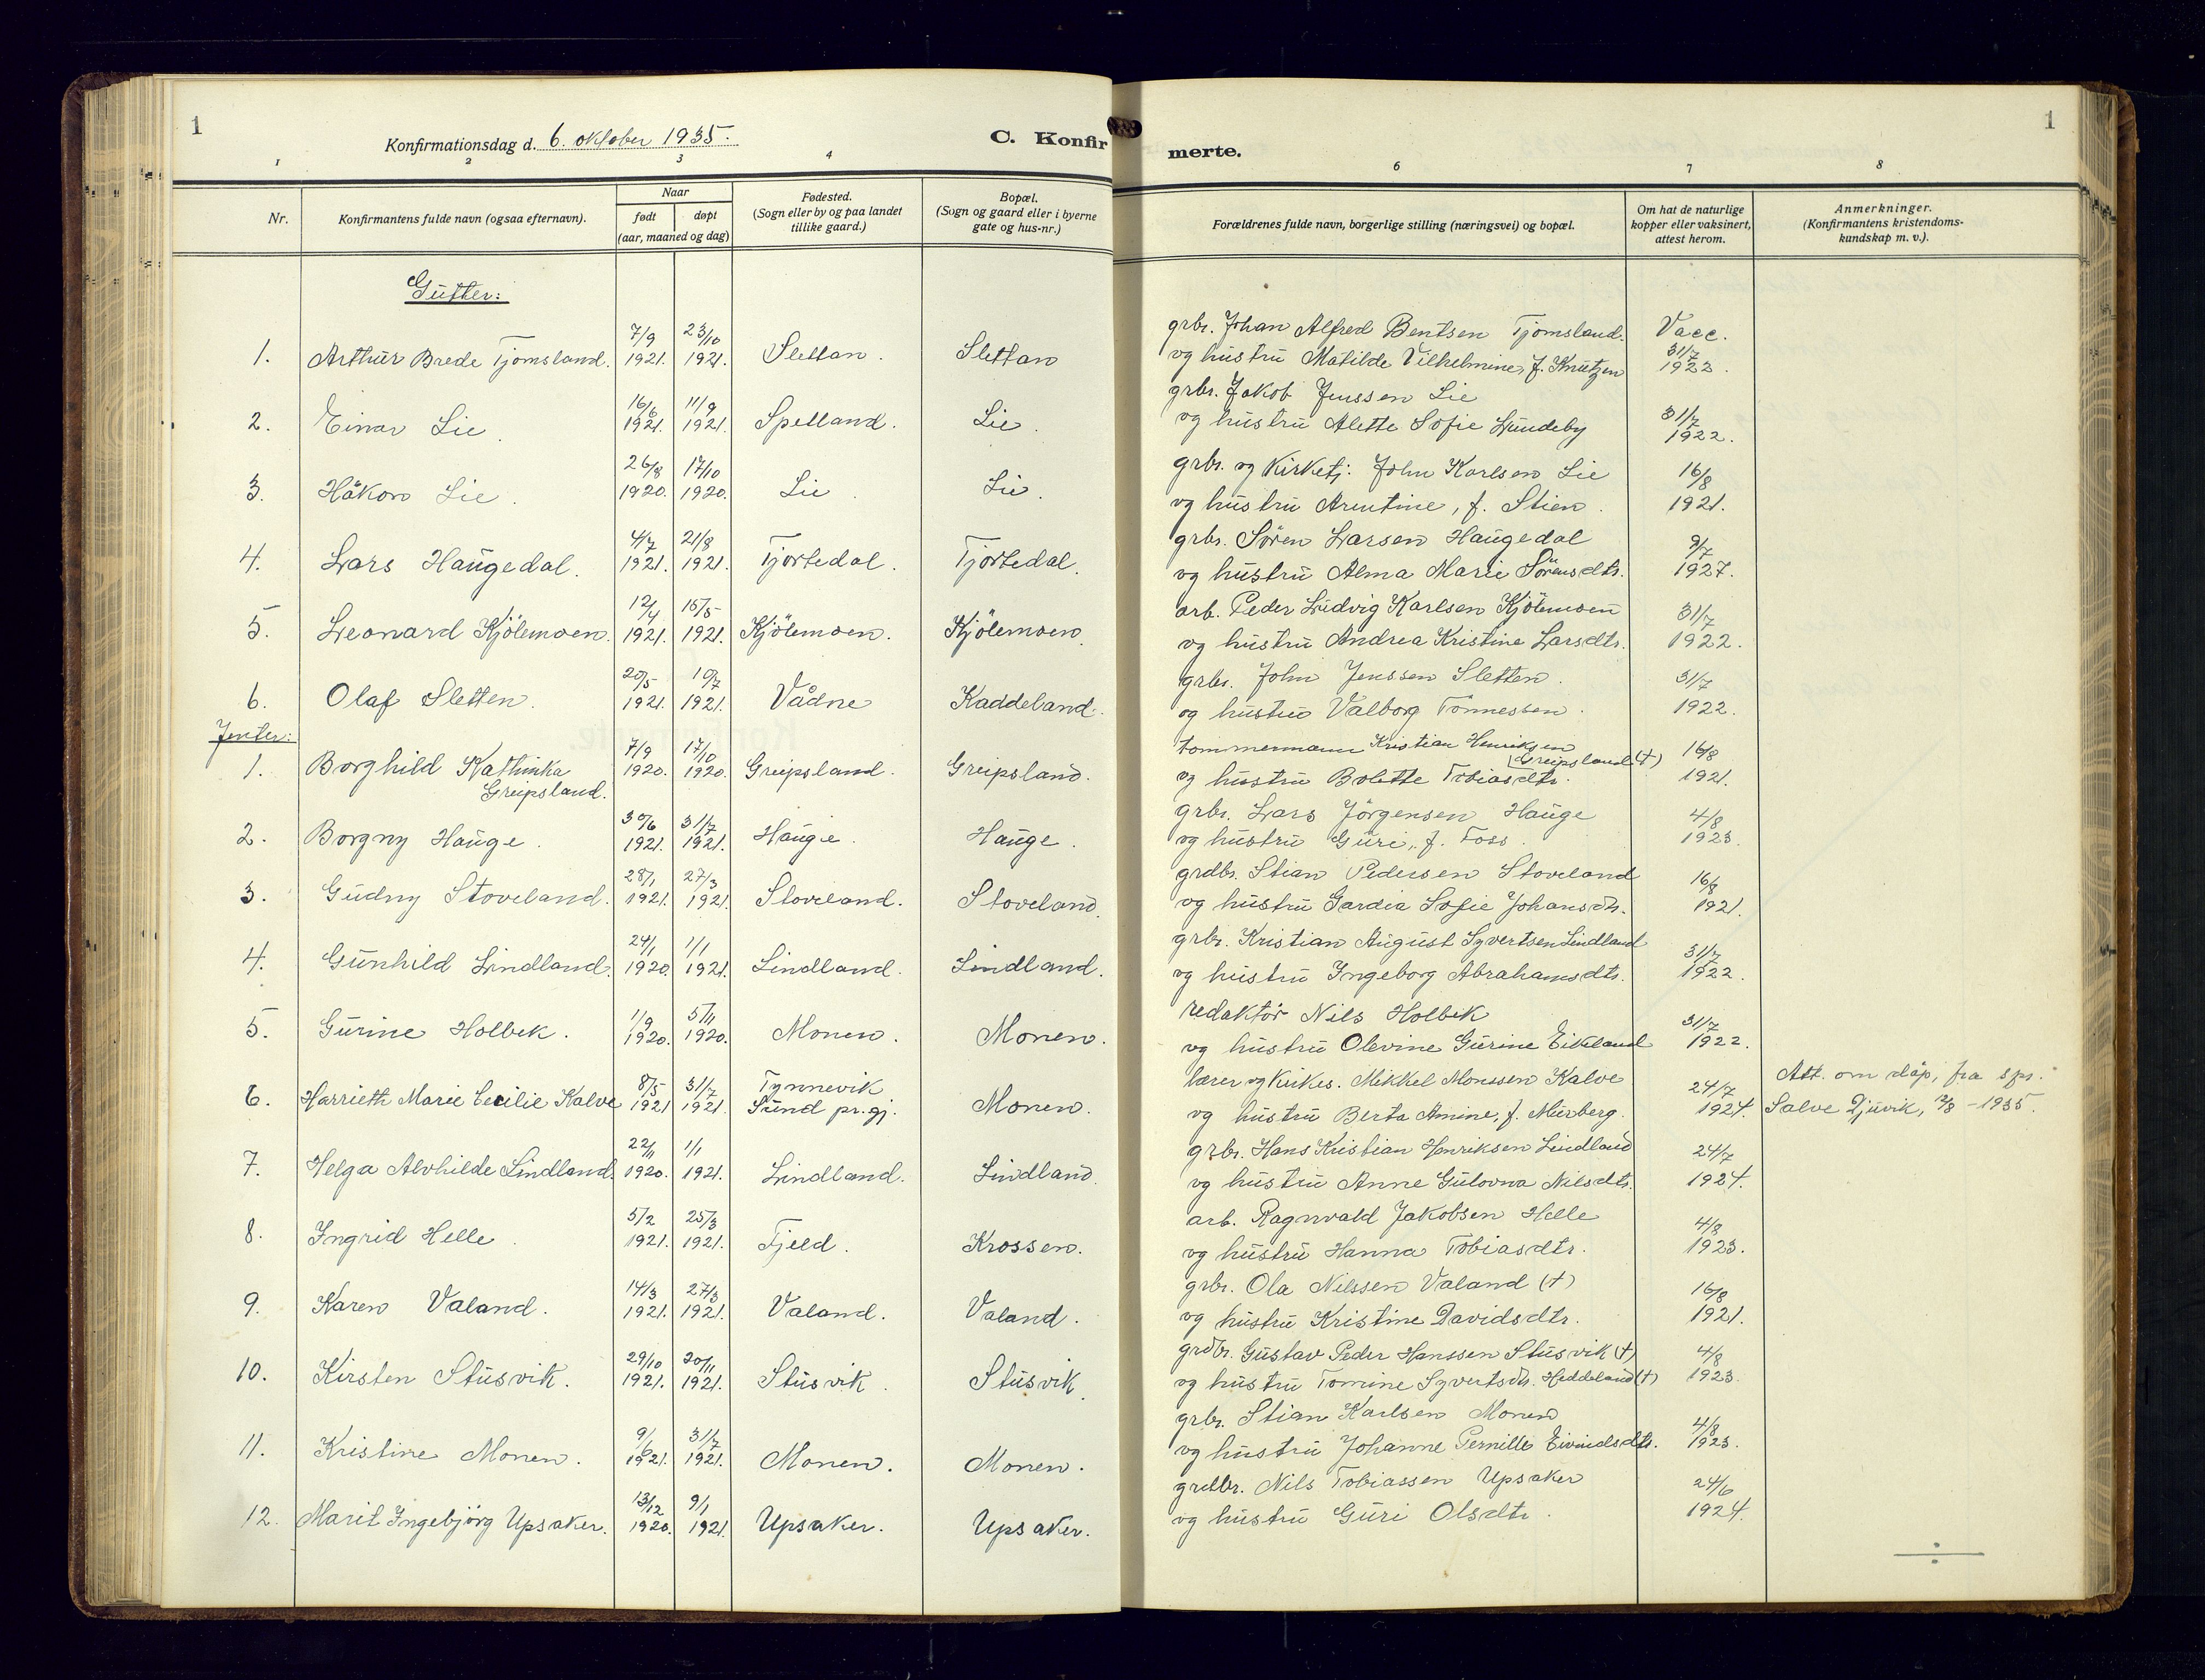 1
Konfirmationsdag d. 6. oktober 1935.
C. Konfir
merte.
1
1 2 3 4
6 7 8
Nr.
Konfirmantens fulde navn (ogsaa efternavn).
Naar
født døpt
(aar, maaned og dag)
Fødested.
(Sogn eller by og paa landet
tillike gaard.)
Bopæl.
(Sogn og gaard eller i byerne
gate og hus-nr.)
Forældrenes fulde navn, borgerlige stilling (næringsvei) og bopæl.
Om hat de naturlige
kopper eller vaksinert,
attest herom.
Anmerkninger.
(Konfirmantens kristendoms-
kundskap m. v.).
Gutter:
7/9 23/10 grbr. Johan Alfred Bentsen Tjomsland. Vacc.
1. Arthur Brede Tjomsland. 1921. 1921. Slettan. Slettan og hustru Matilde Vilhelmine, f. Knutzen 31/7 1922.
16/6 11/9 grbr. Jakob Jenssen Lie
2. Einar Lie. 1921. 1921. Spelland. Lie. og hustru Alette Sofie Lundeby 31/7 1922.
26/8 17/10 grbr. og Kirketj. John Karlsen Lie 16/8
3. Håkon Lie. 1920. 1920. Lie. Lie. og hustru Arentine, f. Stien. 1921.
4/7 21/8 grbr. Sören Larsen Haugedal 9/7
4. Lars Haugedal. 1921. 1921. Tjortedal. Tjortedal. og hustru Alma Marie Sörensdtr. 1927.
12/4 15/5 arb. Peder Ludvig Karlsen Kjölemoen 31/7
5. Leonard Kjölemoen. 1921. 1921. Kjölemoen. Kjölemoen. og hustru Andrea Kristine Larsdtr. 1922.
20/5 10/7 grbr. John Jenssen Sletten. 31/7
6. Olaf Sletten. 1921. 1921. Vådne Kaddeland. og hustru Valborg Tönnessen. 1922.
Jenter:
7/9 17/10 tommermann Kristian Henriksen 16/8
1. Borghild Kathinka 1920. 1920. Greipsland. Greipsland. (Greipsland (†)
Greipsland. og hustru Bolette Tobiasdtr. 1921.
30/6 31/7 grbr. Lars Jörgensen Hauge 4/8
2. Borgny Hauge. 1921. 1921. Hauge. Hauge. og hustru Guri, f. Foss. 1923.
28/1 27/3 grdbr. Stian Pedersen Stoveland 16/8
3. Gudny Stoveland. 1921. 1921. Stoveland. Stoveland. og hustru Gardia Sofie Johansdtr. 1921.
24/1 1/1 grbr. Kristian August Syvertsen Lindland 31/7
4. Gunhild Lindland. 1920. 1921. Lindland. Lindland. og hustru Ingeborg Abrahamsdtr. 1922.
1/9 5/11 redaktör Nils Holbek 31/7
5. Gurine Holbek. 1920. 1920. Monen. Monen. og hustru Olevine Gurine Eikeland 1922.
8/5 31/7 Tynnevik lærer og Kirkes. Mikkel Monssen Kalve 24/7 Att. om dåp, fra spr.
6. Harrieth Marie Cecilie Kalve 1921 1921. Sund pr.gj. Monen. og hustru Berta Amine, f. Murberg. 1924. Salve Djuvik, 12/8 - 1935.
22/11 1/1 grbr. Hans Kristian Henriksen Lindland 24/7
7. Helga Alvhilde Lindland. 1920. 1921. Lindland. Lindland. og hustru Anne Gulovna Nilsdtr. 1924.
5/2 25/3 arb. Ragnvald Jakobsen Helle 4/8
8. Ingrid Helle. 1921. 1921. Fjeld. Krossen. og hustru Hanna Tobiasdtr. 1923.
14/3 27/3 grbr. Ola Nilssen Valand (†) 16/8
9. Karen Valand. 1921. 1921. Valand. Valand. og hustru Kristine Davidsdtr. 1921.
29/10 20/11 grdbr. Gustav Peder Hanssen Stusvik (†) 4/8
10. Kirsten Stusvik. 1921. 1921. Stusvik. Stusvik. og hustru Tomine Syvertsdtr. Heddeland (†) 1923.
9/6 31/7 grbr. Stian Karlsen Monen 4/8
11. Kristine Monen. 1921. 1921. Monen. Monen. og hustru Johanne Pernille Eivindsdtr. 1923.
13/12 9/1 grdbr. Nils Tobiassen Upsaker 24/6
12. Marit Ingebjörg Upsaker. 1920. 1921. Upsaker. Upsaker. og hustru Guri Olsdtr. 1924.